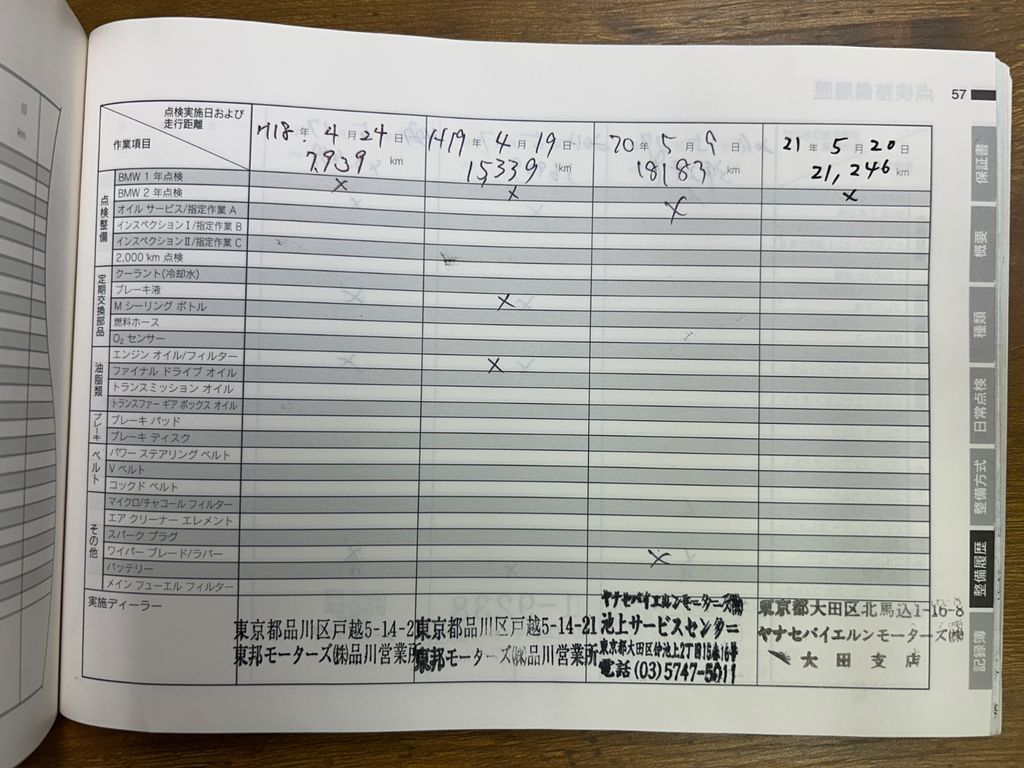 57
点検実施日および
走行距離
作業項目
H18 年 4 月 24 日
7,939 km
H19 年 4 月 19 日
15339 km
20 年 5 月 9 日
18183 km
21 年 5 月 20 日
21,246 km
点検整備
BMW 1 年点検 ×
BMW 2 年点検 × ×
オイル サービス/指定作業 A ×
インスペクションⅠ/指定作業 B
インスペクションⅡ/指定作業 C
2,000 km 点検
定期交換部品
クーラント(冷却水)
ブレーキ液 ×
M シーリング ボトル
燃料ホース
O₂ センサー
油脂類
エンジン オイル/フィルター ×
ファイナル ドライブ オイル
トランスミッション オイル
トランスファー ギア ボックス オイル
ブレーキ
ブレーキ パッド
ブレーキ ディスク
ベルト
パワー ステアリング ベルト
V ベルト
コックド ベルト
その他
マイクロ/チャコール フィルター
エア クリーナー エレメント
スパーク プラグ
ワイパー ブレード/ラバー ×
バッテリー
メイン フューエル フィルター
実施ディーラー
東京都品川区戸越5-14-2
東邦モーターズ㈱品川営業所
東京都品川区戸越5-14-21
東邦モーターズ㈱品川営業所
ヤナセバイエルンモーターズ㈱
池上サービスセンター
東京都大田区仲池上2丁目15番16号
電話(03)5747-5011
東京都大田区北馬込1-16-8
ヤナセバイエルンモーターズ㈱
大田支店
保証書
概要
種類
日常点検
整備方式
整備履歴
記録簿